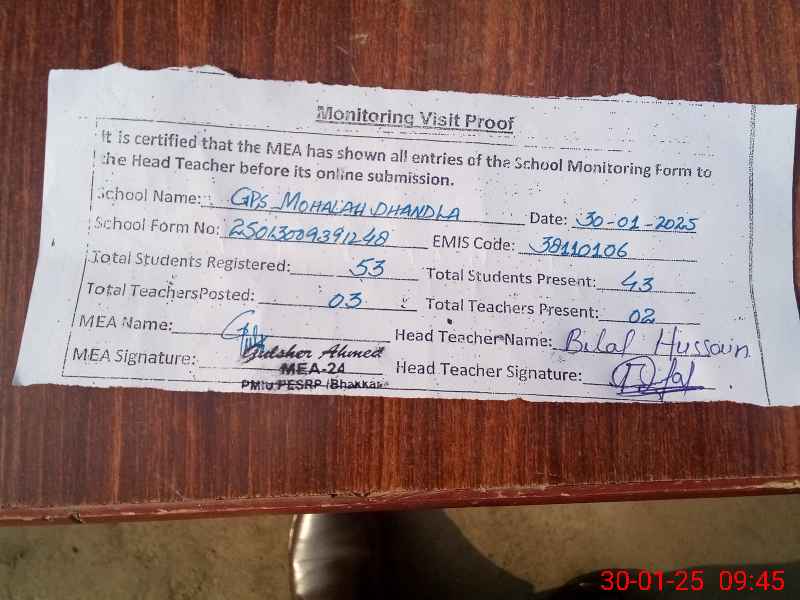 Monitoring Visit Proof
It is certified that the MEA has shown all entries of the School Monitoring Form to
the Head Teacher before its online submission.
School Name: GPS MOHALAH DHANDLA Date: 30-01-2025
School Form No: 25013009391248 EMIS Code: 38110106
Total Students Registered: 53 Total Students Present: 43
Total TeachersPosted: 03 Total Teachers Present: 02
MEA Name: Head Teacher Name: Bilal Hussain
MEA Signature: Gulsher Ahmed Head Teacher Signature:
MEA-24
PMIU PESRP (Bhakkar
30-01-25 09:45